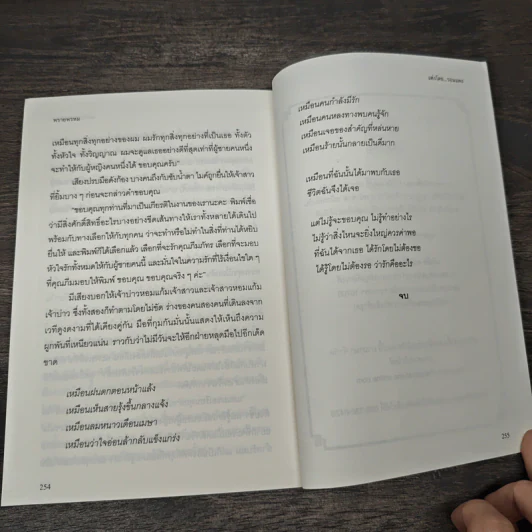 พรายพรหม
เหมือนทุกสิ่งทุกอย่างของผม ผมรักทุกสิ่งทุกอย่างที่เป็นเธอ ทั้งตัว
ทั้งหัวใจ ทั้งวิญญาณ ผมจะดูแลเธออย่างดีที่สุดเท่าที่ผู้ชายคนหนึ่ง
จะทำให้กับผู้หญิงคนหนึ่งได้ ขอบคุณครับ"
เสียงปรบมือดังก้อง บางคนถึงกับซับน้ำตา ไมค์ถูกยื่นให้เจ้าสาว
ที่ยิ้มบาง ๆ ก่อนจะกล่าวคำขอบคุณ
"ขอบคุณทุกท่านที่มาเป็นเกียรติในงานของเรานะคะ พิมพ์เชื่อ
ว่ามีสิ่งศักดิ์สิทธิ์อะไรบางอย่างขีดเส้นทางให้เราทั้งหลายได้เดินไป
พร้อมกับทางเลือกให้กับทุกคน ว่าจะทำหรือไม่ทำในสิ่งที่ท่านได้หยิบ
ยื่นให้ และพิมพ์ก็ได้เลือกแล้ว เลือกที่จะรักคุณภีมภัทร เลือกที่จะมอบ
หัวใจรักทั้งหมดให้กับผู้ชายคนนี้ และมั่นใจในความรักที่ไร้เงื่อนไขใด ๆ
ที่คุณภีมมอบให้พิมพ์ ขอบคุณ ขอบคุณจริง ๆ ค่ะ"
มีเสียงบอกให้เจ้าบ่าวหอมแก้มเจ้าสาวและเจ้าสาวหอมแก้ม
เจ้าบ่าว ซึ่งทั้งสองก็ทำตามโดยไม่ขัด ร่างของคนสองคนที่เดินลงจาก
เวทีดูงดงามที่ได้เคียงคู่กัน มือที่กุมกันมั่นนั้นแสดงให้เห็นถึงความ
ผูกพันที่เหนียวแน่น ราวกับว่าไม่มีวันจะให้อีกฝ่ายหลุดมือไปอีกเด็ด
ขาด
เหมือนฝนตกตอนหน้าแล้ง
เหมือนเห็นสายรุ้งขึ้นกลางแจ้ง
เหมือนลมหนาวเดือนเมษา
เหมือนว่าใจอ่อนล้ากลับแข็งแกร่ง
254
เหมือนคนกำลังมีรัก
เหมือนคนหลงทางพบคนรู้จัก
เหมือนเจอของสำคัญที่หล่นหาย
เหมือนร้ายนั้นกลายเป็นดีมาก
เหมือนที่ฉันนั้นได้มาพบกับเธอ
ชีวิตฉันจึงได้เจอ
แต่ไม่รู้จะขอบคุณ ไม่รู้ทำอย่างไร
ไม่รู้ว่าสิ่งไหนจะยิ่งใหญ่ควรค่าพอ
ที่ฉันได้จากเธอ ได้รักโดยไม่ต้องขอ
ได้รู้โดยไม่ต้องรอ ว่ารักคืออะไร
จบ
255